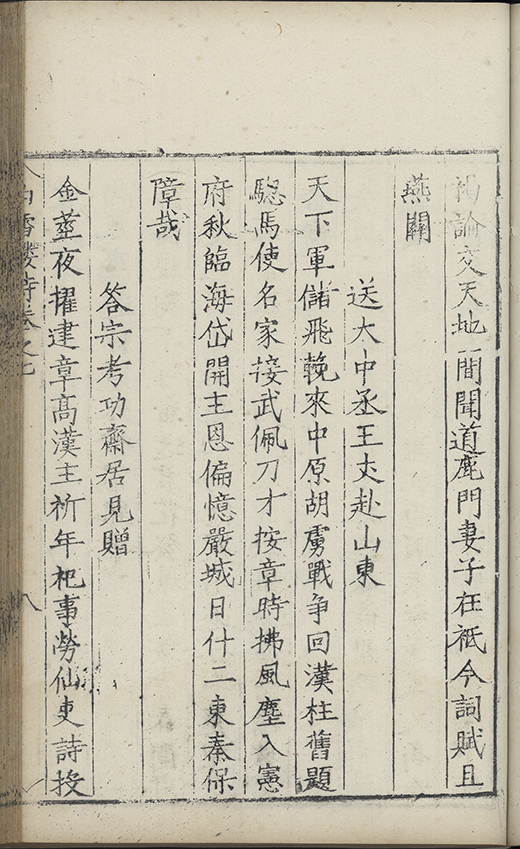 裯論交天地間聞道鹿門妻子在祗今詞賦且
燕關
送大中丞王丈赴山東
天下軍儲飛輓來中原胡虜戰爭回漢柱舊題
驄馬使名家接武佩刀才按章時拂風塵入憲
府秋臨海岱開主恩偏憶嚴城日什二東秦保
障哉
答宗考功齋居見贈
金莖夜擢建章高漢主祈年杞事勞仙吏詩投
白雪樓詩卷之七 八